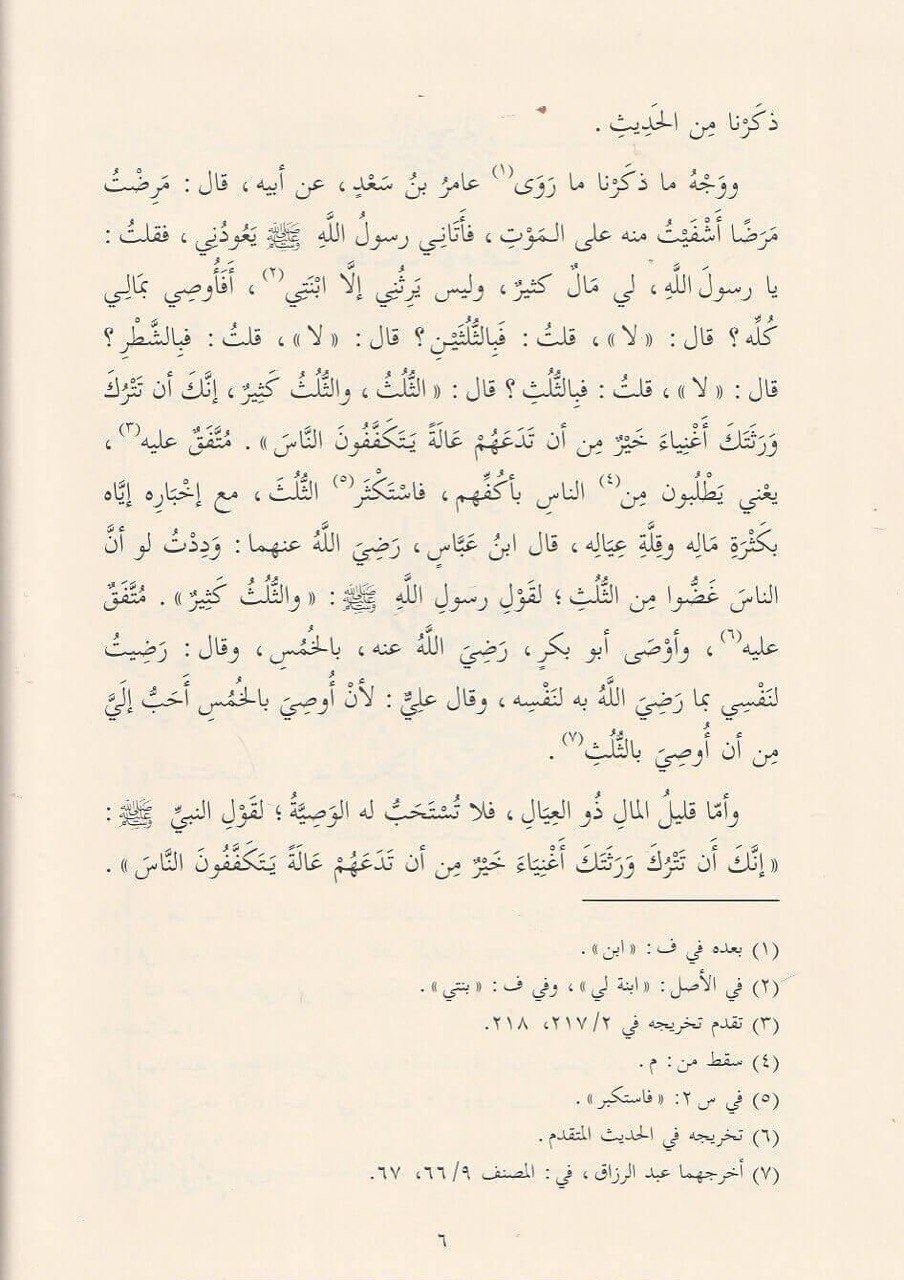 ذكَرْنا مِن الحَدِيثِ .
ووَجْهُ ما ذكَرْنا ما رَوَى(١) عامرُ بنُ سَعْدٍ ، عن أبيه ، قال : مَرِضْتُ
مَرَضًا أَشْفَيْتُ منه على الـمَوْتِ ، فأَتَانِي رسولُ اللَّهِ ﷺ يَعُودُنِي ، فقلتُ :
يا رسولَ اللَّهِ ، لي مَالٌ كثيرٌ ، وليس يَرِثُنِي إلَّا ابْنَتِي(٢) ، أَفَأُوصِي بمَالِي
كُلِّه ؟ قال : « لا » ، قلتُ : فَبِالثُّلُثَيْنِ ؟ قال : « لا » ، قلتُ : فبِالشَّطْرِ ؟
قال : « لا » ، قلتُ : فبِالثُّلُثِ ؟ قال : « الثُّلُثُ ، والثُّلُثُ كَثِيرٌ ، إنَّكَ أن تَتْرُكَ
وَرَثَتَكَ أَغْنِياءَ خَيْرٌ مِن أن تَدَعَهُمْ عَالَةً يَتَكَفَّفُونَ النَّاسَ » . مُتَّفَقٌ عليه(٣) ،
يعْني يَطْلُبون مِن(٤) الناسِ بأكُفِّهم ، فاسْتَكْثَر(٥) الثُّلُثَ ، مع إخْبَارِه إيَّاه
بكَثْرَةِ مَالِه وقِلَّةِ عِيَالِه ، قال ابنُ عَبَّاسٍ ، رَضِيَ اللَّهُ عنهما : وَدِدْتُ لو أنَّ
الناسَ غَضُّوا مِن الثُّلُثِ ؛ لقَوْلِ رسولِ اللَّهِ ﷺ : « والثُّلُثُ كَثِيرٌ » . مُتَّفَقٌ
عليه(٦) ، وأوْصَى أبو بكرٍ ، رَضِيَ اللَّهُ عنه ، بالخُمُسِ ، وقال : رَضِيتُ
لنَفْسِي بما رَضِيَ اللَّهُ به لنَفْسِه ، وقال علِيٌّ : لأنْ أُوصِيَ بالخُمُسِ أَحَبُّ إلَيَّ
مِن أن أُوصِيَ بالثُّلُثِ(٧) .
وأمّا قليلُ المالِ ذُو العِيَالِ ، فلا تُسْتَحَبُّ له الوَصِيَّةُ ؛ لقَوْلِ النبيِّ ﷺ :
« إنَّكَ أَن تَتْرُكَ وَرَثَتَكَ أَغْنِيَاءَ خَيْرٌ مِن أن تَدَعَهُمْ عَالَةً يَتَكَفَّفُونَ النَّاسَ » .
(١) بعده في ف : « ابن » .
(٢) في الأصل : « ابنة لي » ، وفي ف : « بنتي » .
(٣) تقدم تخريجه في ٢/ ٢١٧، ٢١٨.
(٤) سقط من : م .
(٥) في س ٢: « فاستكبر » .
(٦) تخريجه في الحديث المتقدم .
(٧) أخرجهما عبد الرزاق ، في : المصنف ٩/ ٦٦، ٦٧.
٦